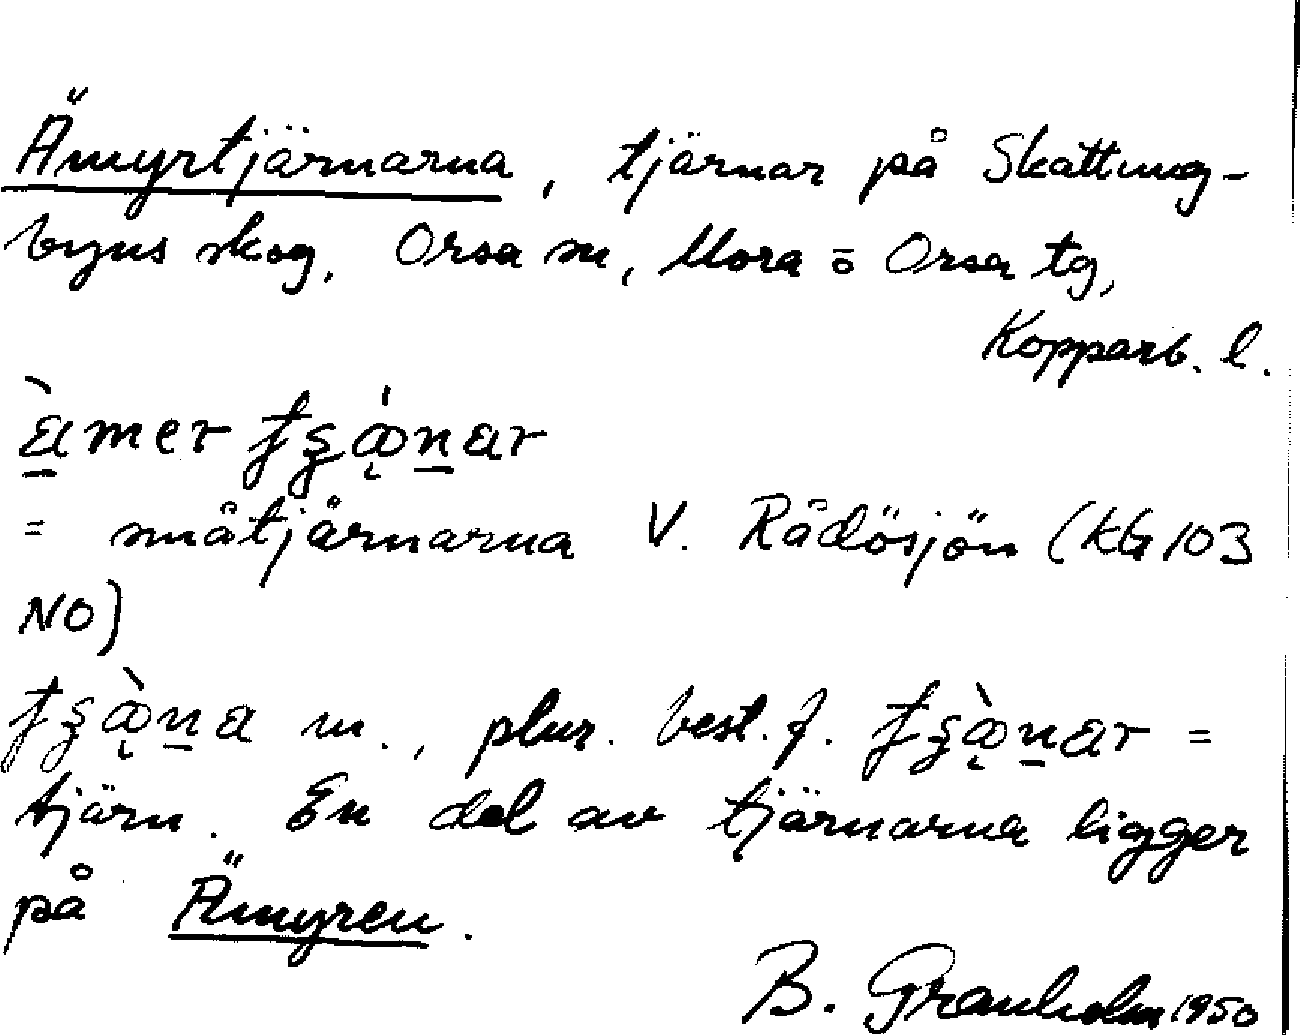 Ämyrtjärnarna, tjärnar på Skattung-
byns skog, Orsa sn, Mora o Orsa tg,
Kopparb. l.
= småtjärnarna V. Rädösjön (KG 103
NO)
m., plur. best. f. =
tjärn. En del av tjärnarna ligger
på Ämyren.
B. Granholm 1950